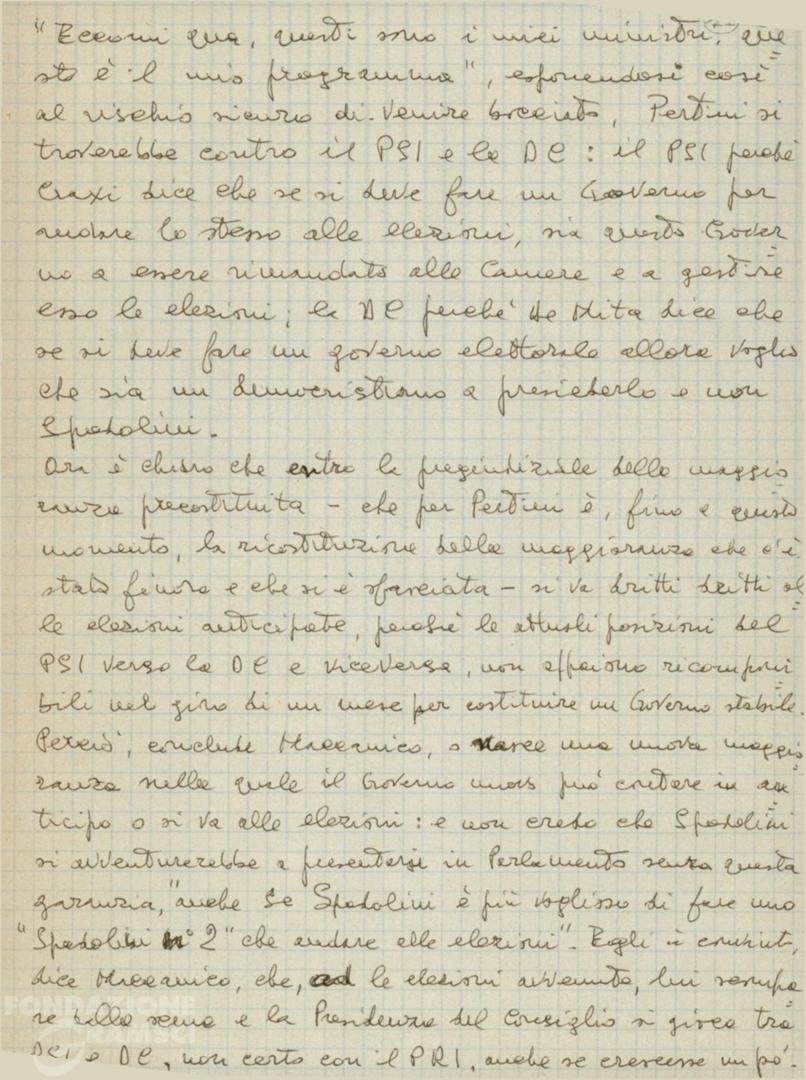 "Eccomi qua, questi sono i miei ministri, que
sto è il mio programma", esponendosi così
al rischio sicuro di venire bocciato, Pertini si
troverebbe contro il PSI e la DC: il PSI perché
Craxi dice che se si deve fare un Governo per
andare lo stesso alle elezioni, sia questo Gover
no a essere rimandato alle Camere e a gestire
esso le elezioni; la DC perché De Mita dice che
se si deve fare un governo elettorale allora voglio
che sia un democristiano a presiederlo e non
Spadolini.
Ora è chiaro che entro la pregiudiziale della maggio
ranza precostituita - che per Pertini è, fino a questo
momento, la ricostituzione della maggioranza che c'è
stata finora e che si è sfasciata - si va dritti dritti al
le elezioni anticipate, perché le attuali posizioni del
PSI verso la DC e viceversa, non appaiono ricomponi
bili nel giro di un mese per costituire un Governo stabile.
Perciò, conclude Maccanico, o nasce una nuova maggio
ranza nella quale il Governo nuovo può contare in an
ticipo o si va alle elezioni: e non credo che Spadolini
si avventurerebbe a presentarsi in Parlamento senza questa
garanzia, "anche se Spadolini è più voglioso di fare uno
"Spadolini n° 2" che andare alle elezioni". Egli è convinto,
dice Maccanico, che, ad le elezioni avvenute, lui scompa
re dalla scena e la Presidenza del Consiglio si gioca tra
PSI e DC, non certo con il PRI, anche se crescesse un pò.
FONDAZIONE